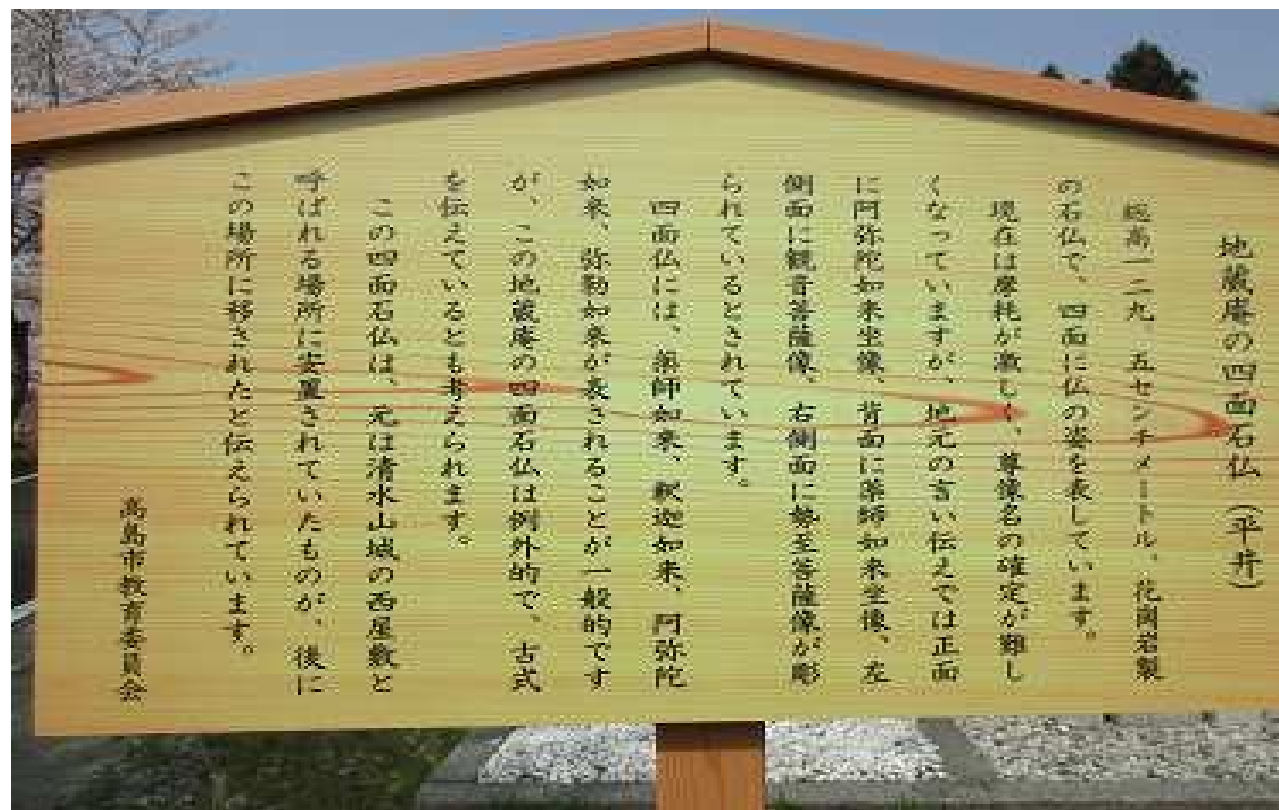 地蔵庵の四面石仏（平井）
総高一二九．五センチメートル、花崗岩製
の石仏で、四面に仏の姿を表しています。
現在は摩耗が激しく、尊像名の確定が難し
くなっていますが、地元の言い伝えでは正面
に阿弥陀如来坐像、背面に薬師如来坐像、左
側面に観音菩薩像、右側面に勢至菩薩像が彫
られているとされています。
四面仏には、薬師如来、釈迦如来、阿弥陀
如来、弥勒如来が表されることが一般的です
が、この地蔵庵の四面石仏は例外的で、古式
を伝えているとも考えられます。
この四面石仏は、元は清水山城の西屋敷と
呼ばれる場所に安置されていたものが、後に
この場所に移されたと伝えられています。
高島市教育委員会